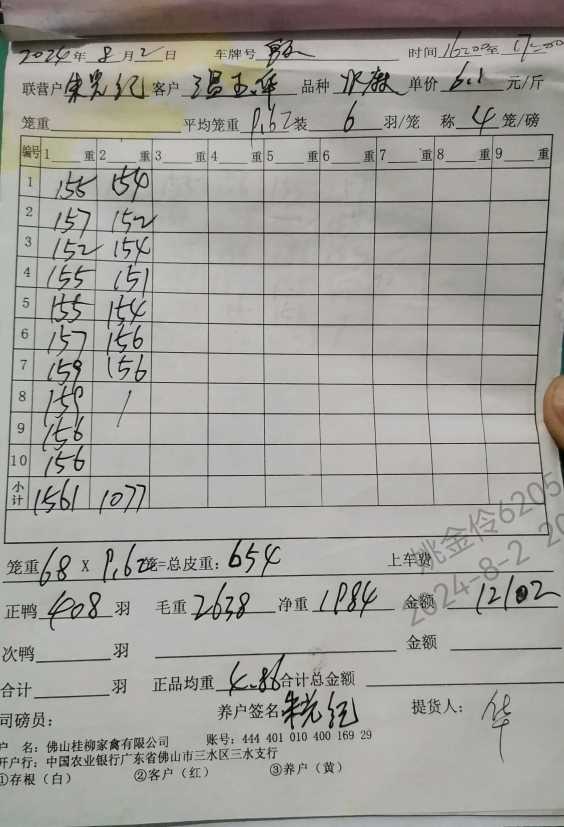 2024年 8月 2日 车牌号 时间 16:00至 17:00
联营户 朱光纪 客户 温玉华 品种 水麻 单价 6.1 元/斤
笼重 平均笼重 9.62 装 6 羽/笼 称 4 笼/磅
编号 1 重 2 重 3 重 4 重 5 重 6 重 7 重 8 重 9 重
1 155 154
2 157 152
3 152 154
4 155 151
5 155 154
6 157 156
7 159 156
8 159 /
9 156
10 156
小计 1561 1077
笼重 68 X 9.62 笼=总皮重: 654 上车费
正鸭 408 羽 毛重 2638 净重 1984 金额 12102
次鸭 羽 金额
合计 羽 正品均重 4.86 合计总金额
司磅员: 养户签名 朱光纪 提货人: 华
户 名: 佛山桂柳家禽有限公司 账号: 444 401 010 400 169 29
开户行: 中国农业银行广东省佛山市三水区三水支行
①存根(白) ②客户(红) ③养户(黄)
姚金伶6205
2024-8-2 20